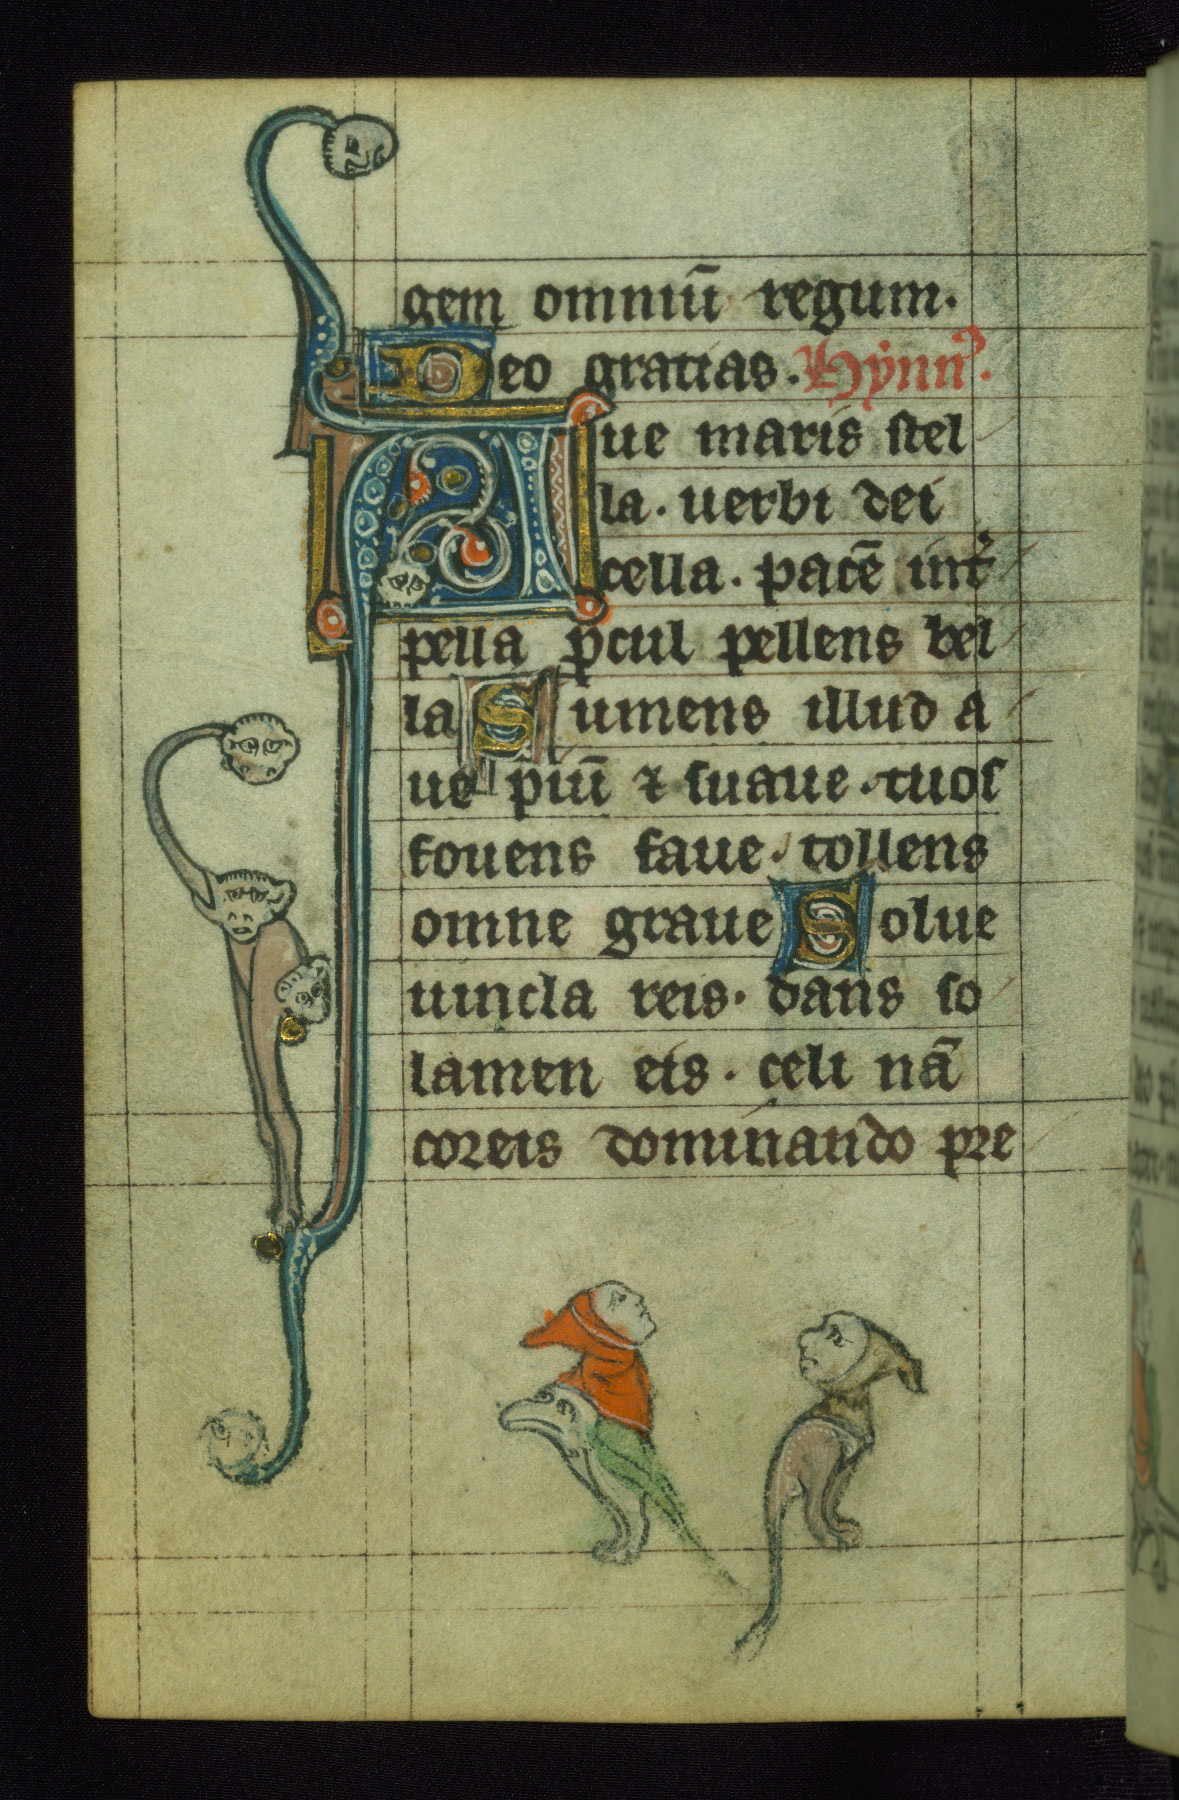 gem omniū regum.
Deo gratias. Hẏnn⁹.
Aue maris stel
la. uerbi dei
cella. pacē int̉
pella ꝓcul pellens bel
la Sumens illud a
ue piū ⁊ suaue. tuos
fouens faue. tollens
omne graue Solue
uincla reis. dans so
lamen eis. celi nā
coreis dominando pre